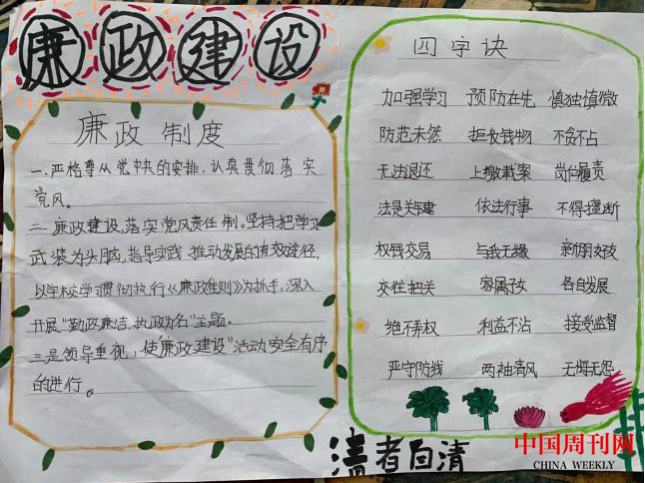 廉政建设
廉政制度
一.严格尊从党中央的安排,认真贯彻落实
党风。
二.廉政建设,落实党风责任制。坚持把学习
武装为头脑,指导实践,推动发展的有效途径,
以学校学习贯彻执行《廉政准则》为抓手,深入
开展"勤政廉洁、执政为名"主题。
三是领导重视,使"廉政建设"活动安全有序
的进行。
四字诀
加强学习 预防在先 慎独慎微
防范未然 拒收钱物 不贪不占
无法退还 上缴栽案 岗位履责
法是关键 依法行事 不得擅断
权钱交易 与我无缘 亲朋好友
交往把关 家属子女 各自发展
绝不弄权 利益不沾 接受监督
严守防线 两袖清风 无悔无怨
清者自清
中国周刊网
CHINA WEEKLY